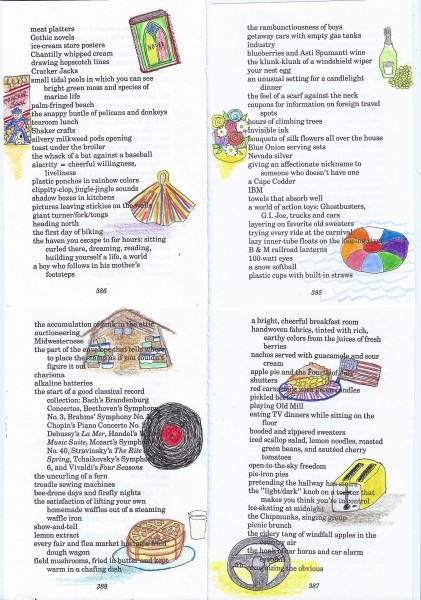 meat platters
Gothic novels
ice-cream store posters
Chantilly whipped cream
drawing hopscotch lines
Cracker Jacks
small tidal pools in which you can see
bright green moss and species of
marine life
palm-fringed beach
the snappy bustle of pelicans and donkeys
tearoom lunch
Shaker crafts
silvery milkweed pods opening
toast under the broiler
the whack of a bat against a baseball
alacrity = cheerful willingness,
liveliness
plastic ponchos in rainbow colors
clippity-clop, jingle-jingle sounds
shadow boxes in kitchens
pictures leaving stickies on the walls
giant turner/fork/tongs
heading north
the first day of biking
the haven you escape to for hours: sitting
curled there, dreaming, reading,
building yourself a life, a world
a boy who follows in his mother's
footsteps
386
the rambunctiousness of boys
getaway cars with empty gas tanks
industry
blueberries and Asti Spumanti wine
the klunk-klunk of a windshield wiper
your nest egg
an unusual setting for a candlelight
dinner
the feel of a scarf against the neck
coupons for information on foreign travel
spots
hours of climbing trees
invisible ink
bouquets of silk flowers all over the house
Blue Onion serving sets
Nevada silver
giving an affectionate nickname to
someone who doesn't have one
a Cape Codder
IBM
towels that absorb well
a world of action toys: Ghostbusters,
G.I. Joe, trucks and cars
layering on favorite old sweaters
trying every ride at the carnival
lazy inner-tube floats on the looping river
B & M railroad lanterns
100-watt eyes
a snow softball
plastic cups with built-in straws
385
the accumulation of junk in the attic
auctioneering
Midwesterness
the part of the envelope that tells where
to place the stamp as if you couldn't
figure it out
charisma
alkaline batteries
the start of a good classical record
collection: Bach's Brandenburg
Concertos, Beethoven's Symphony
No. 3, Brahms' Symphony No.
Chopin's Piano Concerto No.
Debussy's La Mer, Handel's
Music Suite, Mozart's Symphony
No. 40, Stravinsky's The Rite
Spring, Tchaikovsky's Symphony
6, and Vivaldi's Four Seasons
the uncurling of a fern
treadle sewing machines
bee-drone days and firefly nights
the satisfaction of lifting your own
homemade waffles out of a steaming
waffle iron
show-and-tell
lemon extract
every fair and flea market having a fried
dough wagon
field mushrooms, fried in butter and kept
warm in a chafing dish
388
a bright, cheerful breakfast room
handwoven fabrics, tinted with rich,
earthy colors from the juices of fresh
berries
nachos served with guacamole and sour
cream
apple pie and the Fourth of July
shutters
red carnations with candles
pickled beets
playing Old Mill
eating TV dinners while sitting on the
floor
hooded and zippered sweaters
iced scallop salad, lemon noodles, roasted
green beans, and sautéed cherry
tomatoes
open-to-the-sky freedom
pie-iron pies
pretending the hallway has stairs
the "light/dark" knob on a toaster that
makes you think you're in control
ice-skating at midnight
the Chipmunks, singing group
picnic brunch
the cidery tang of windfall apples in the
country air
the honk of car horns and car alarm
systems
the obvious
387